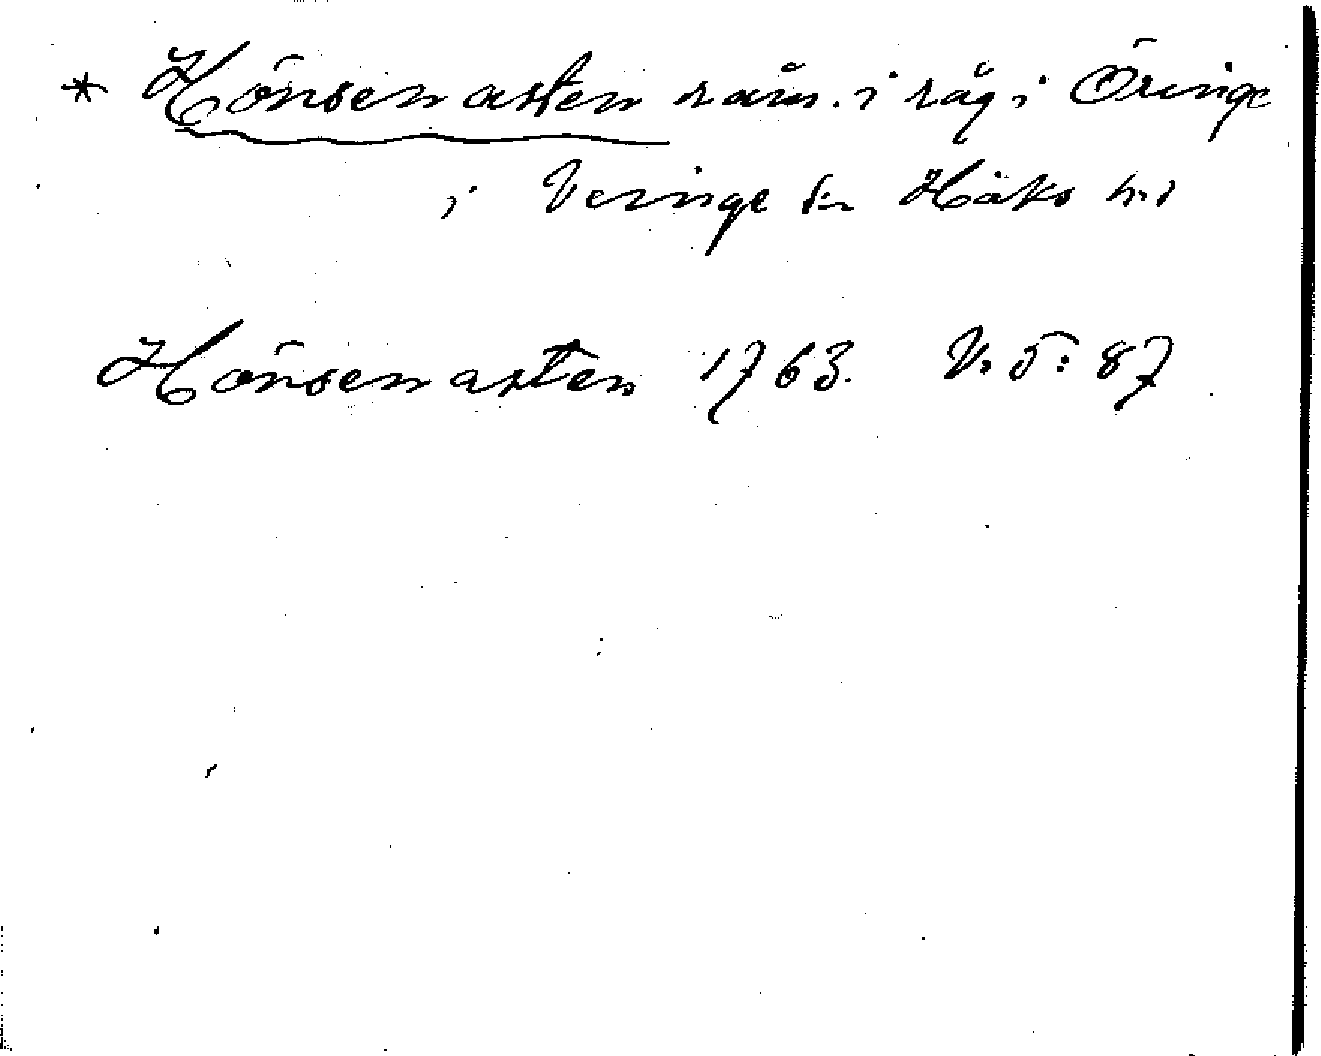 * Hönsenasten råm. i råg i Öringe
i Veinge sn Höks hd
Hönsenasten 1763. V. 5: 87